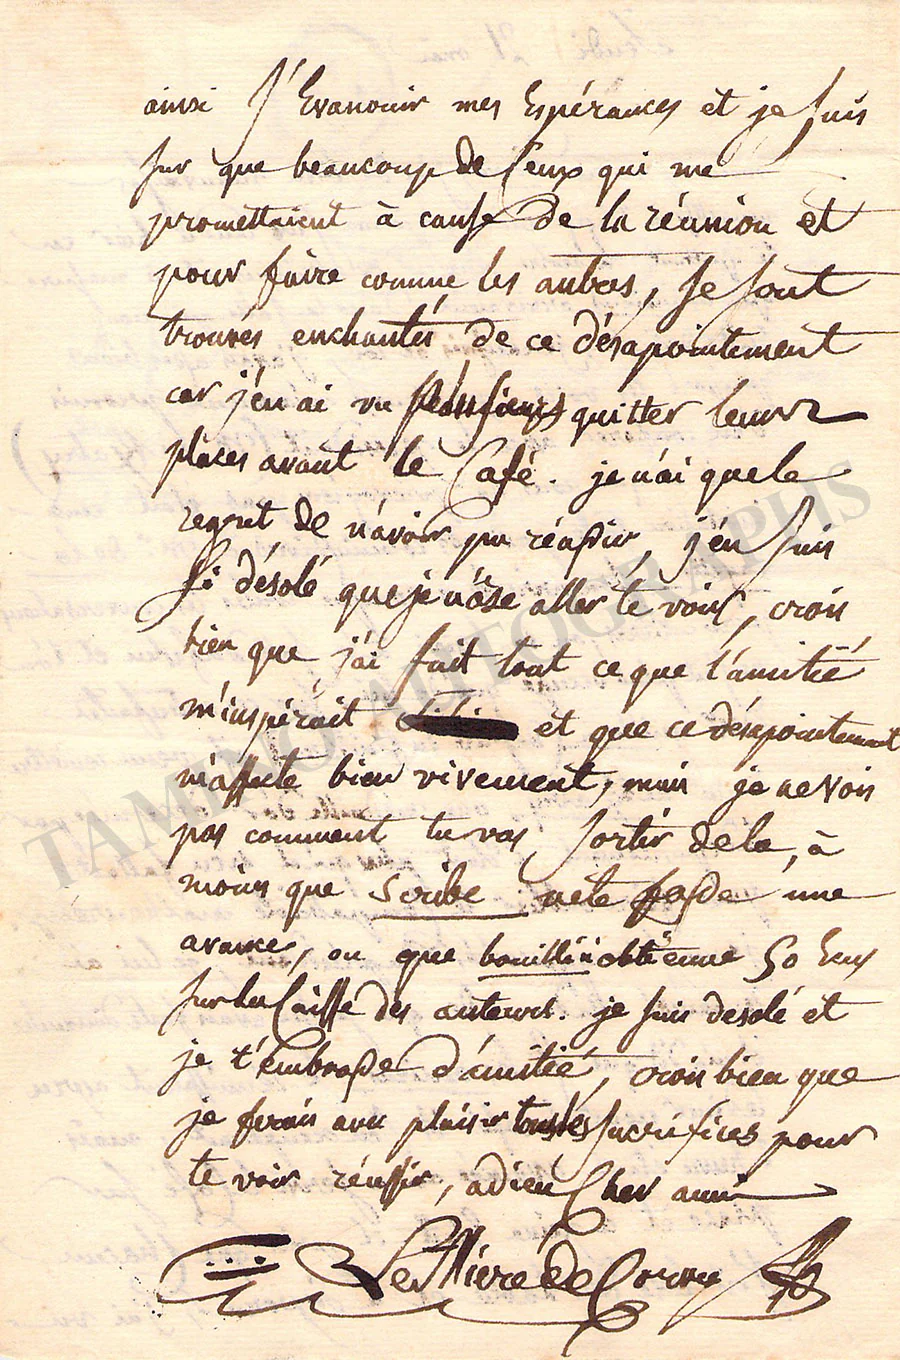 ainsi s'Evanouir mes Espérances et je suis
sur que beaucoup de Ceux qui me
promettaient à cause de la réunion et
pour faire comme les autres, se sont
trouvés enchantés de ce désapointement
car j'en ai vu plusieurs quitter leurs
places avant le Café. je n'ai que le
regret de n'avoir pu réussir, j'en suis
si désolé que je n'ose aller te voir, crois
bien que j'ai fait tout ce que l'amitié
m'inspirait et que ce désapointement
m'affecte bien vivement, mais je ne vois
pas comment tu vas sortir de la, à
moins que Scribe ne te fasse une
avance, ou que bouilli obtienne 50 Eus
sur la Caisse des auteurs. je suis desolé et
je t'embrasse d'amitié, crois bien que
je ferais avec plaisir tous les sacrifices pour
te voir réussir, adieu Cher ami
Le de Corvey
TAMINO AUTOGRAPHS